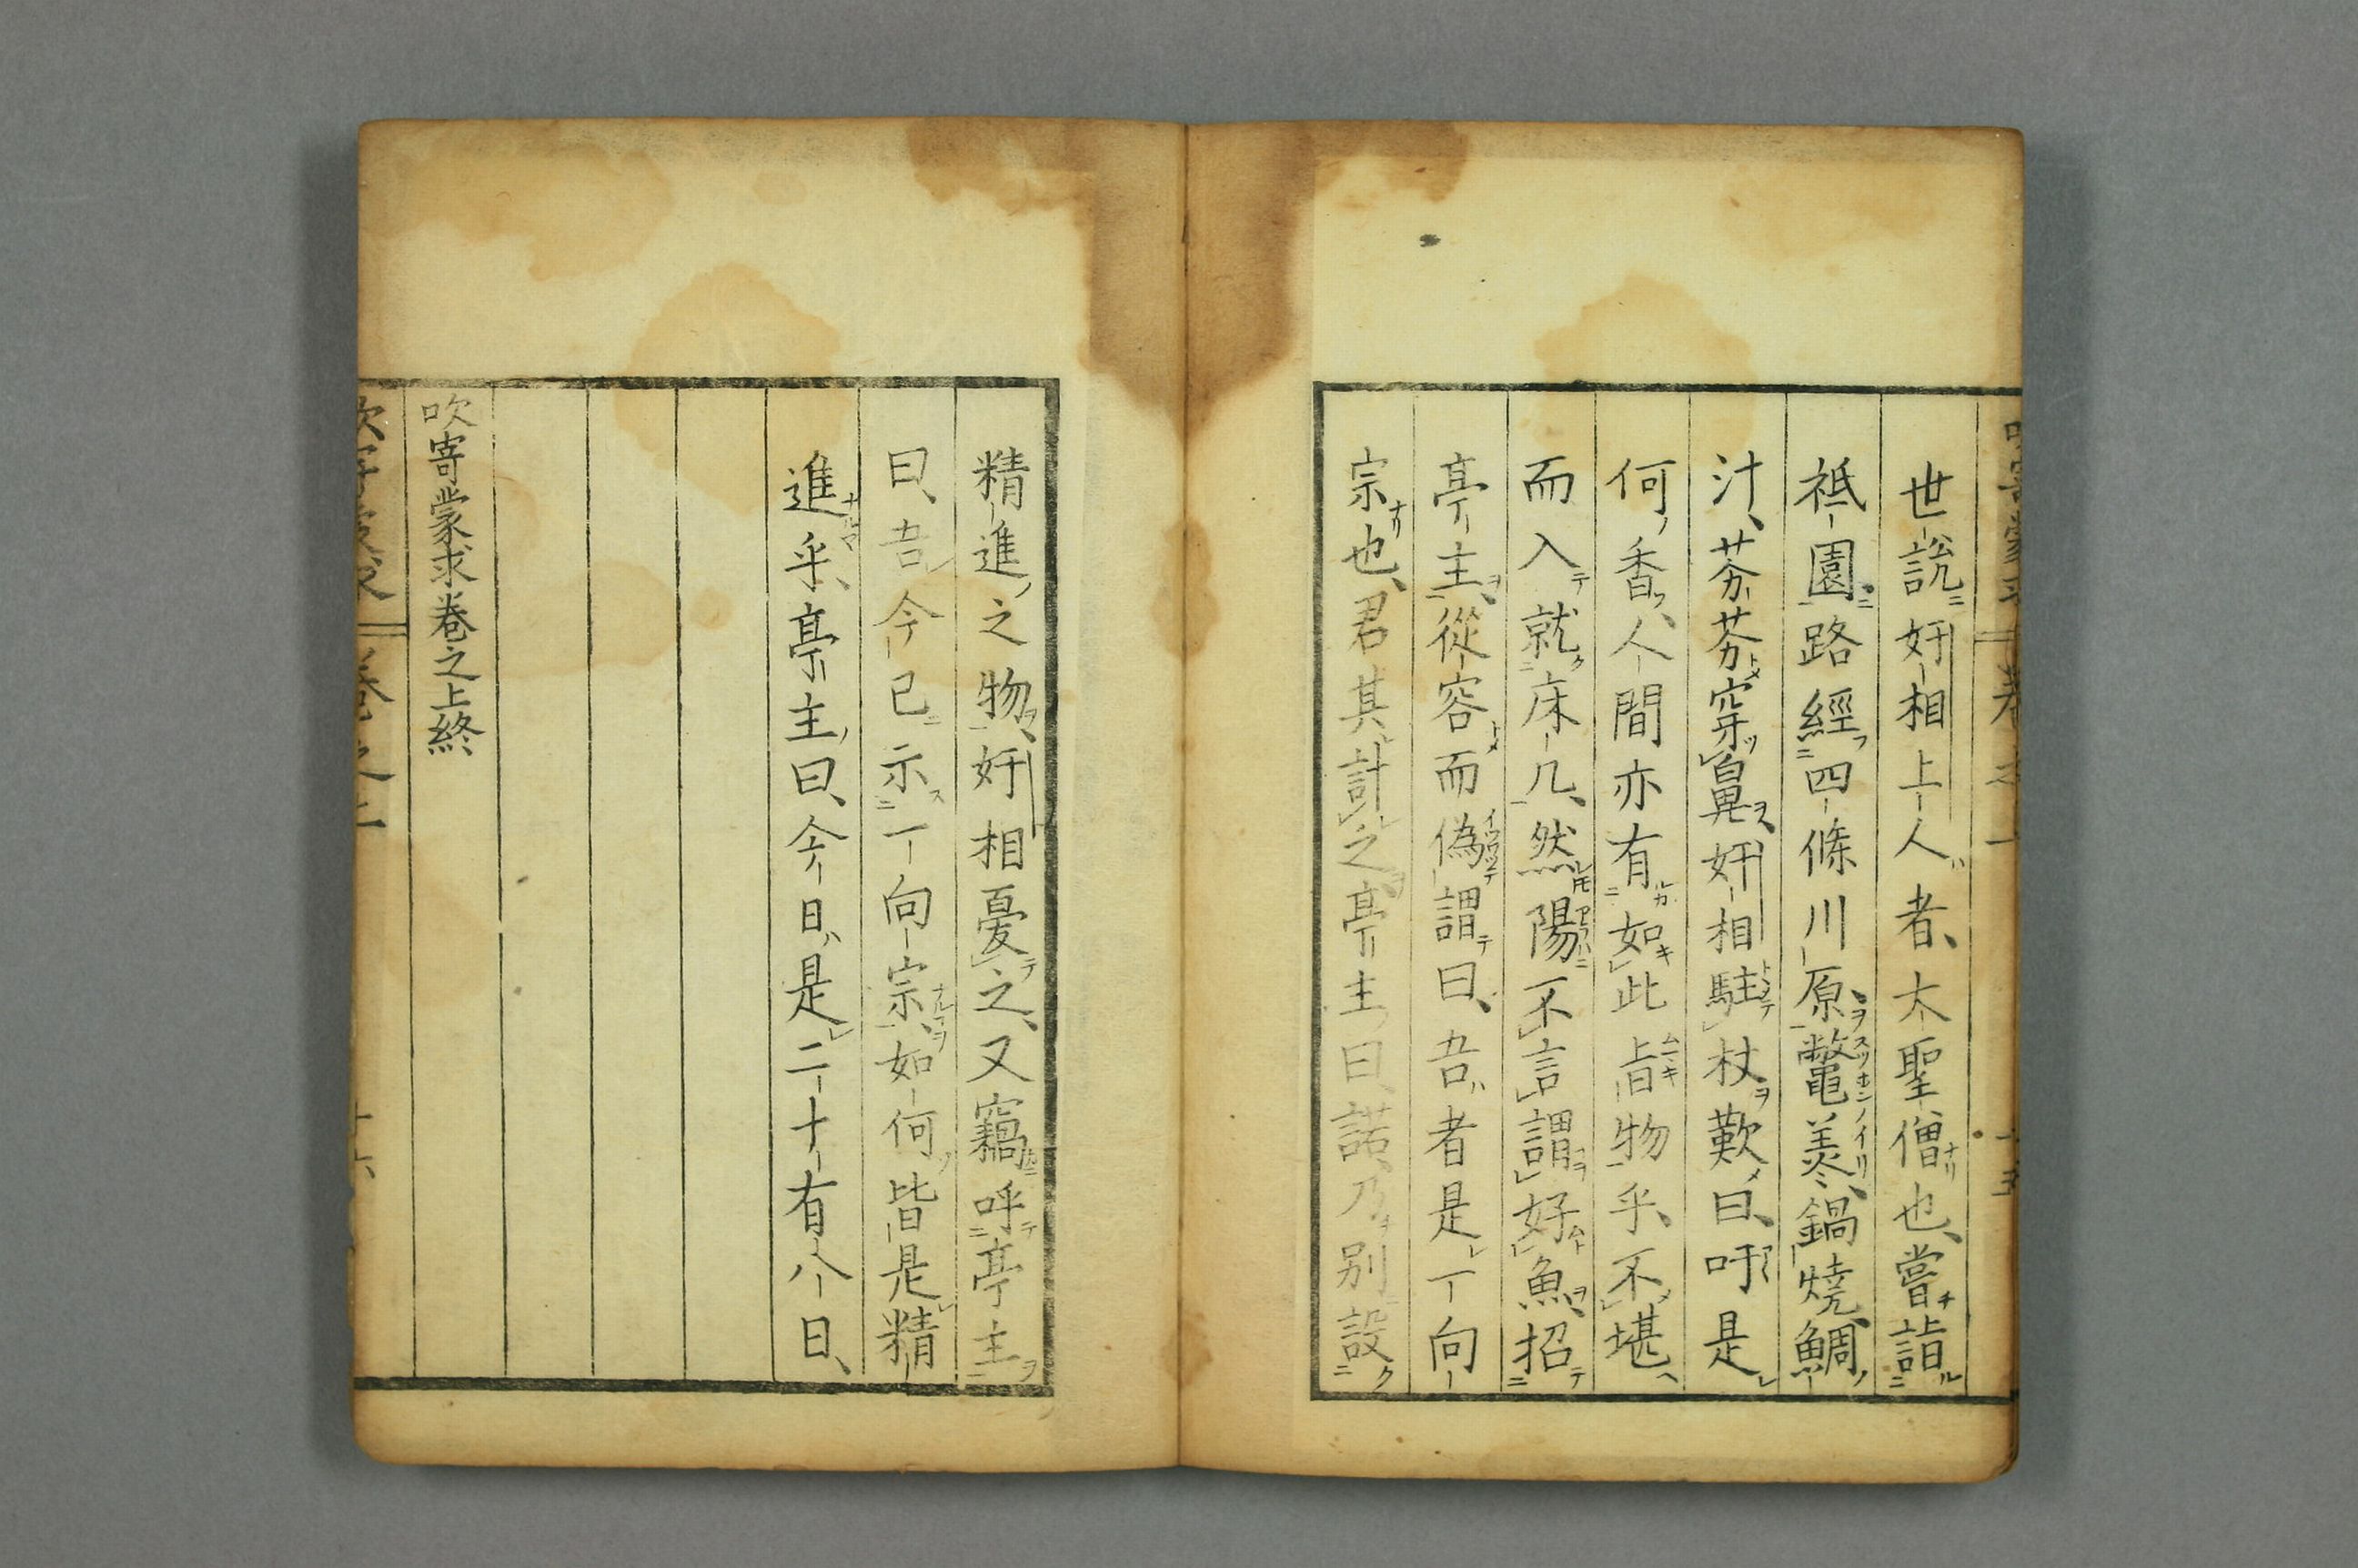 世說奸相上人者、太聖僧也、嘗詣
祗園、路經四條川原、鼈羹、鍋燒、鯛
汁、芬芬穿鼻、奸相駐杖歎曰、吁是
何香、人間亦有如此旨物乎、不堪
而入就床几、然陽不言謂好魚、招
亭主、從容而偽謂曰、吾者是一向
宗也、君其計之、亭主曰、諾、乃別設
精進之物、奸相憂之、又竊呼亭主
曰、吾今已示一向宗、如何皆是精
進乎、亭主曰、今日是二十有八日、
吹寄蒙求卷之上終